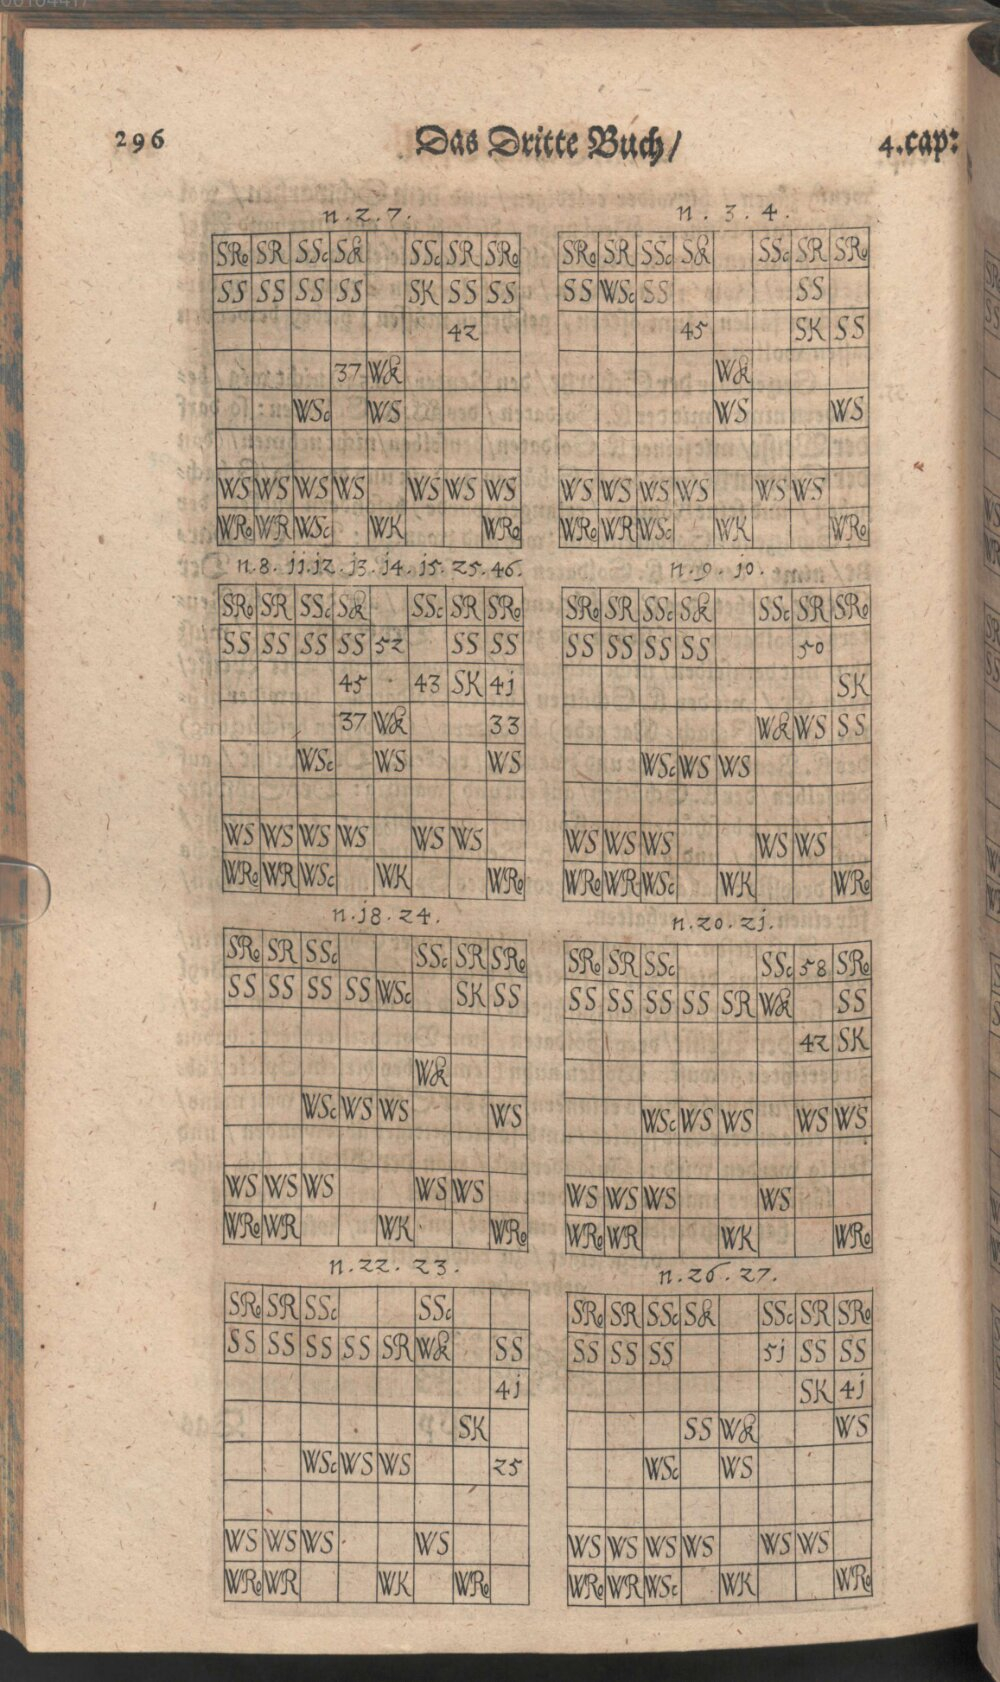 296 Das Dritte Buch/ 4.cap:
n.2.7.
SRo SR SSc Sk SSc SR SRo
SS SS SS SS SK SS SS
42
37 Wk
WSc WS
WS WS WS WS WS WS WS
WRo WR WSc WK WRo
n.3.4.
SRo SR SSc Sk SSc SR SRo
SS WSc SS SS
45 SK SS
Wk
WS WS
WS WS WS WS WS WS
WRo WR WSc WK WRo
n.8.jj.j2.j3.j4.j5.25.46.
SRo SR SSc Sk SSc SR SRo
SS SS SS SS 52 SS SS
45 43 SK 4j
37 Wk 33
WSc WS WS
WS WS WS WS WS WS
WRo WR WSc WK WRo
n.9.jo.
SRo SR SSc Sk SSc SR SRo
SS SS SS SS 50
SK
Wk WS SS
WSc WS WS
WS WS WS WS WS
WRo WR WSc WK WRo
n.j8.24.
SRo SR SSc SSc SR SRo
SS SS SS SS WSc SK SS
Wk
WSc WS WS WS
WS WS WS WS WS
WRo WR WK WRo
n.20.2j.
SRo SR SSc SSc 58 SRo
SS SS SS SS SR Wk SS
42 SK
WSc WS WS WS WS
WS WS WS WS
WRo WR WK WRo
n.22.23.
SRo SR SSc SSc
SS SS SS SS SR Wk SS
4j
SK
WSc WS WS 25
WS WS WS WS
WRo WR WK WRo
n.26.27.
SRo SR SSc Sk SSc SR SRo
SS SS SS 5j SS SS
SK 4j
SS Wk WS
WSc WS
WS WS WS WS WS WS
WRo WR WSc WK WRo